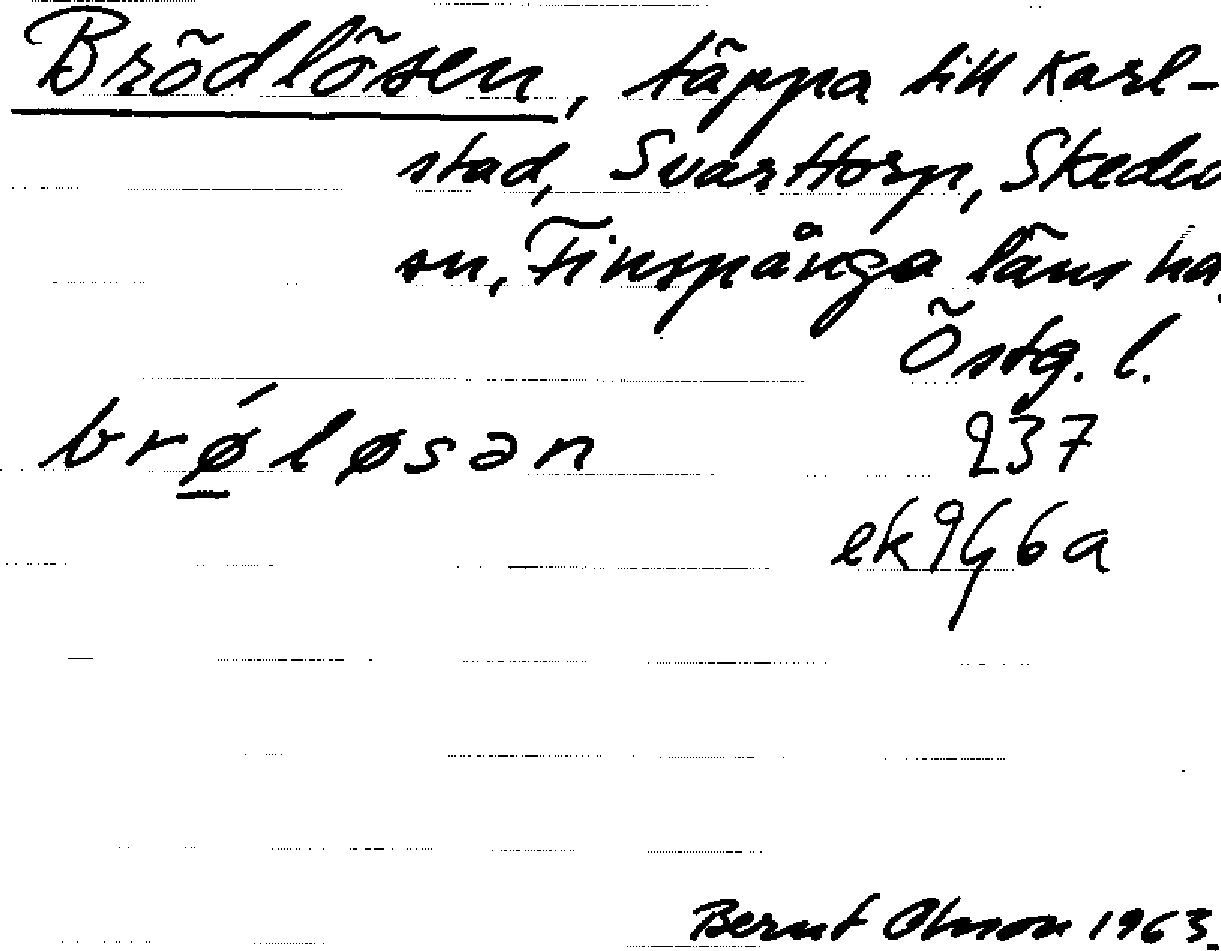 Brödlösen, täppa till Karl-
stad, Svarttorp, Skedev
sn, Finspånga läns hd,
Östg. l.
brǿløsən 237
ek 9Gb a
Bernt Olsson 1963